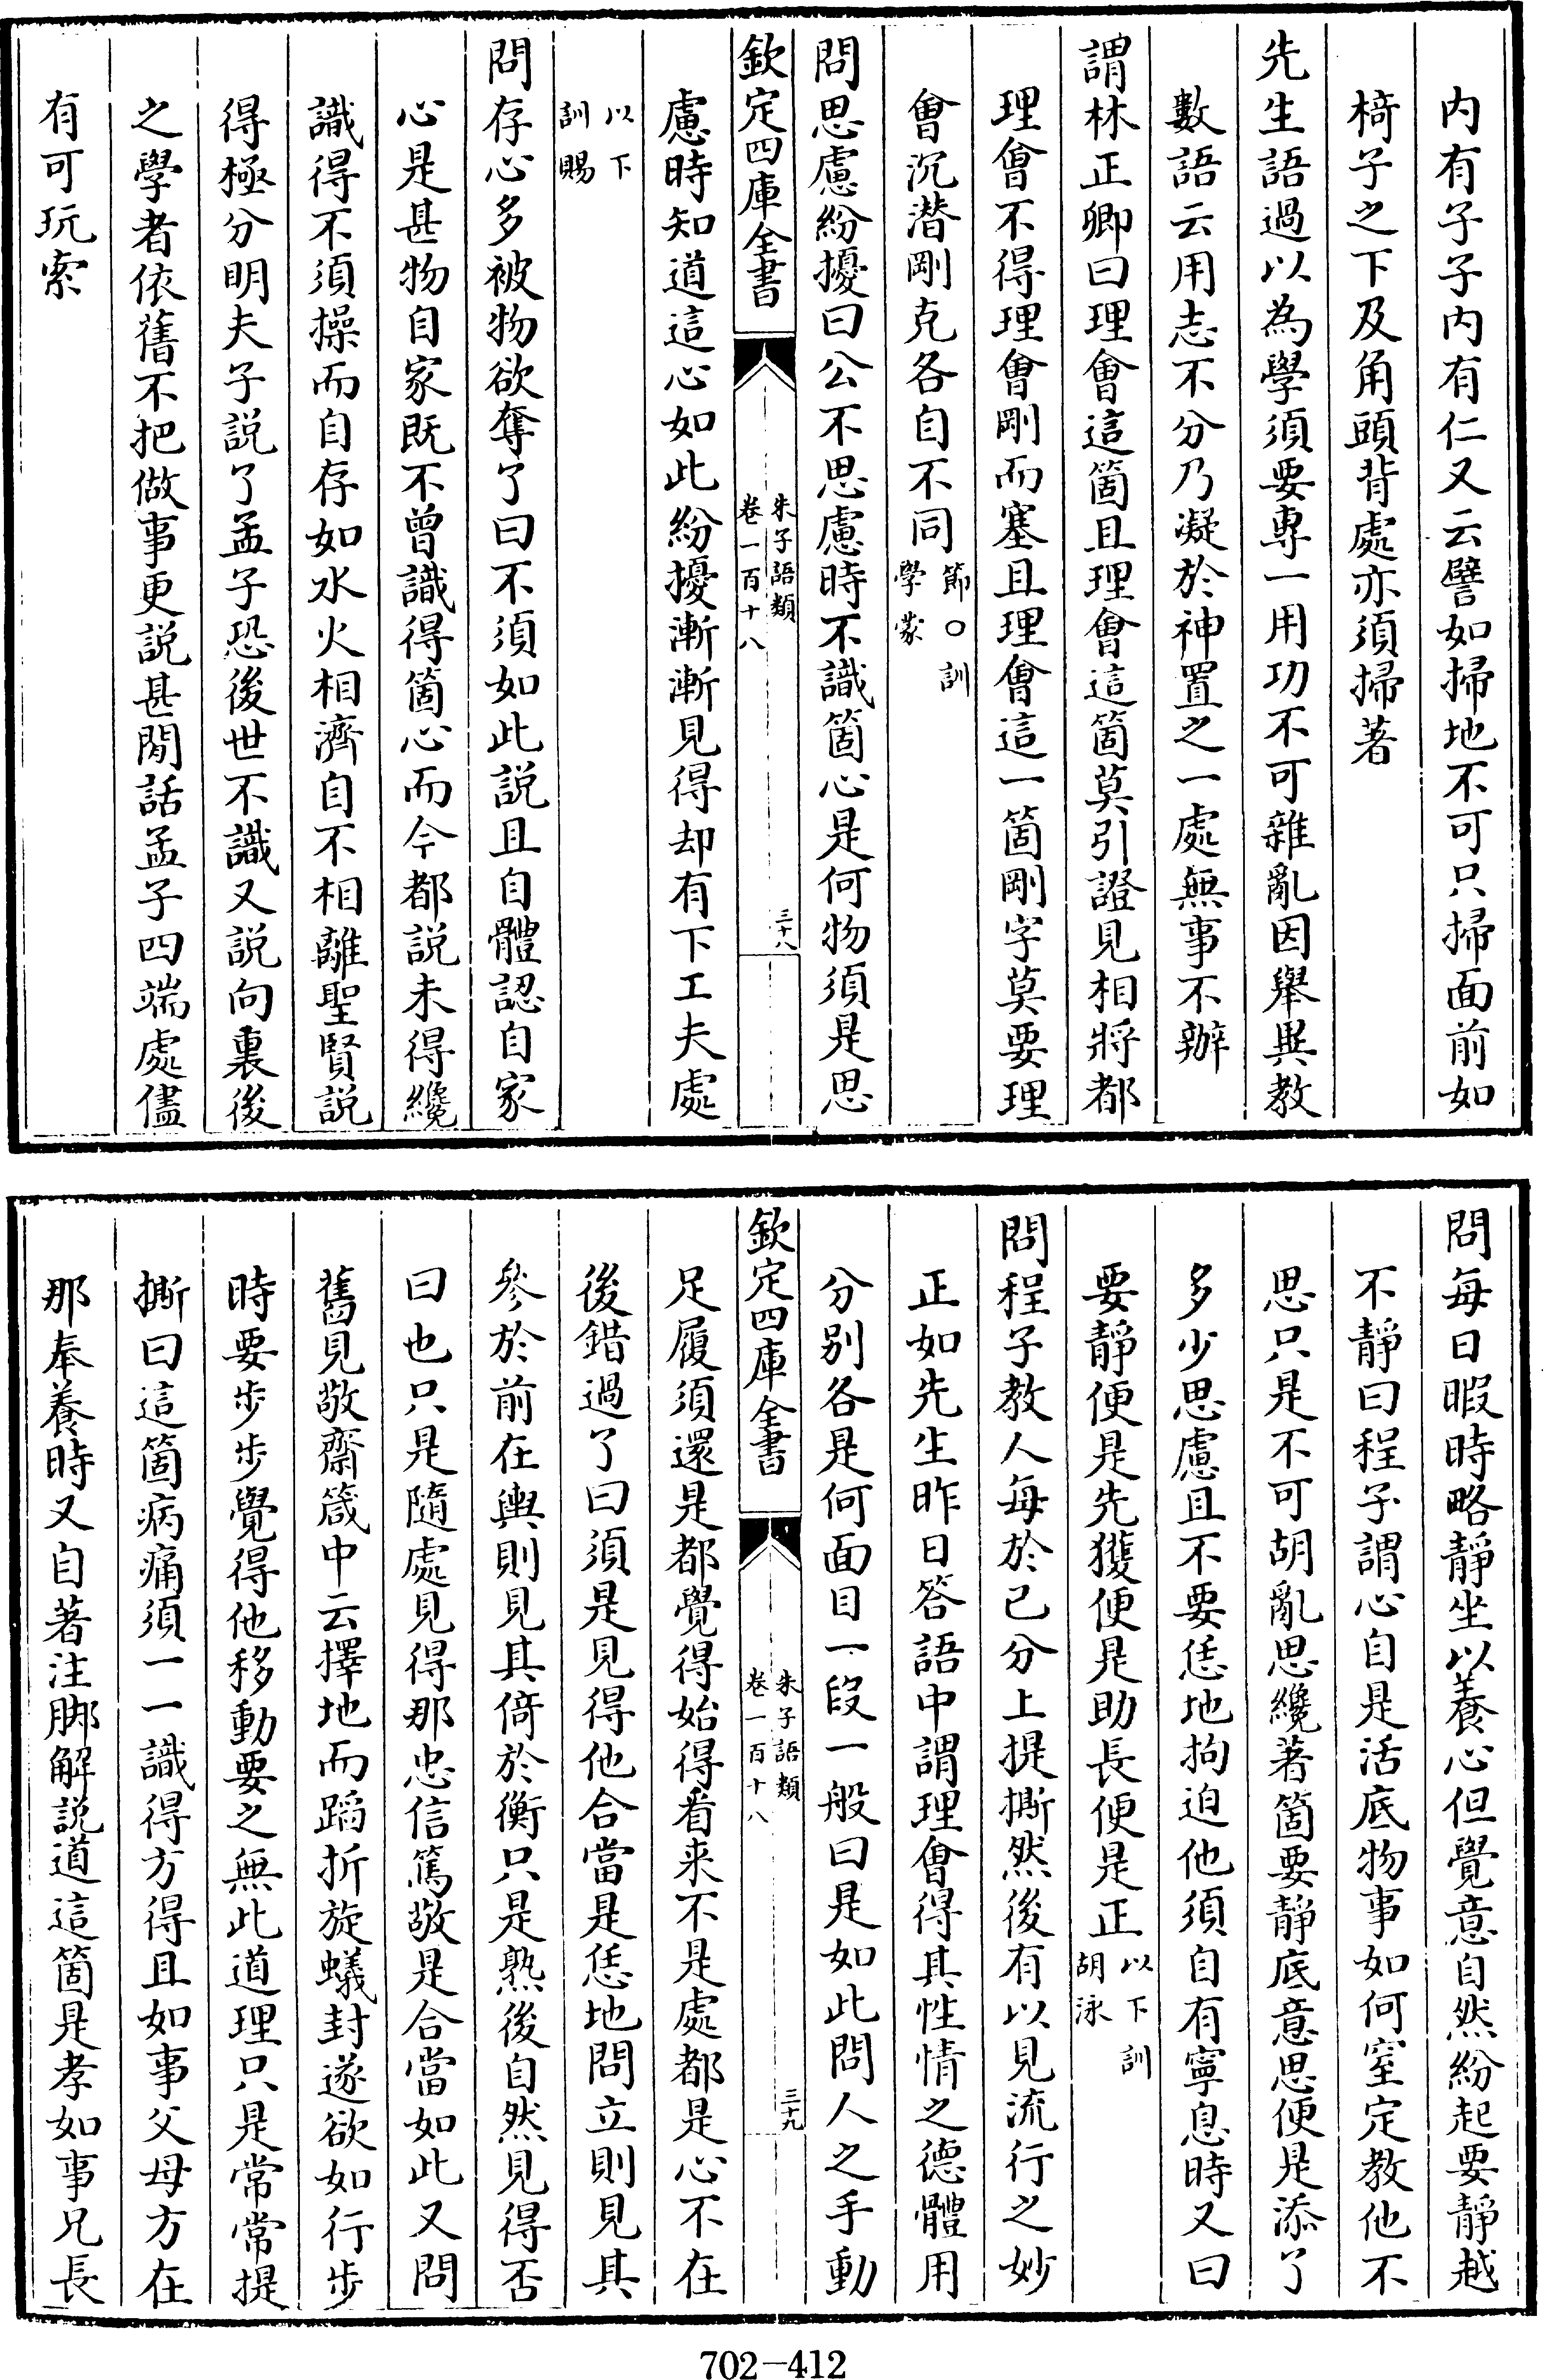 內有子子內有仁又云譬如掃地不可只掃面前如
椅子之下及角頭背處亦須掃著
先生語過以為學須要專一用功不可雜亂因舉異教
數語云用志不分乃凝於神置之一處無事不辦
謂林正卿曰理會這箇且理會這箇莫引證見相將都
理會不得理會剛而塞且理會這一箇剛字莫要理
會沉潛剛克各自不同節○訓學蒙
問思慮紛擾曰公不思慮時不識箇心是何物須是思
欽定四庫全書 朱子語類 卷一百十八 三十八
慮時知道這心如此紛擾漸漸見得却有下工夫處
以下訓賜
問存心多被物欲奪了曰不須如此說且自體認自家
心是甚物自家既不曾識得箇心而今都說未得纔
識得不須操而自存如水火相濟自不相離聖賢說
得極分明夫子說了孟子恐後世不識又說向裏後
之學者依舊不把做事更說甚閒話孟子四端處儘
有可玩索
問每日暇時略靜坐以養心但覺意自然紛起要靜越
不靜曰程子謂心自是活底物事如何窒定教他不
思只是不可胡亂思纔著箇要靜底意思便是添了
多少思慮且不要恁地拘迫他須自有寧息時又曰
要靜便是先獲便是助長便是正以下訓胡泳
問程子教人每於己分上提撕然後有以見流行之妙
正如先生昨日答語中謂理會得其性情之德體用
分別各是何面目一段一般曰是如此問人之手動
欽定四庫全書 朱子語類 卷一百十八 三十九
足履須還是都覺得始得看來不是處都是心不在
後錯過了曰須是見得他合當是恁地問立則見其
參於前在輿則見其倚於衡只是熟後自然見得否
曰也只是隨處見得那忠信篤敬是合當如此又問
舊見敬齋箴中云擇地而蹈折旋蟻封遂欲如行步
時要步步覺得他移動要之無此道理只是常常提
撕曰這箇病痛須一一識得方得且如事父母方在
那奉養時又自著注脚解說道這箇是孝如事兄長
702-412